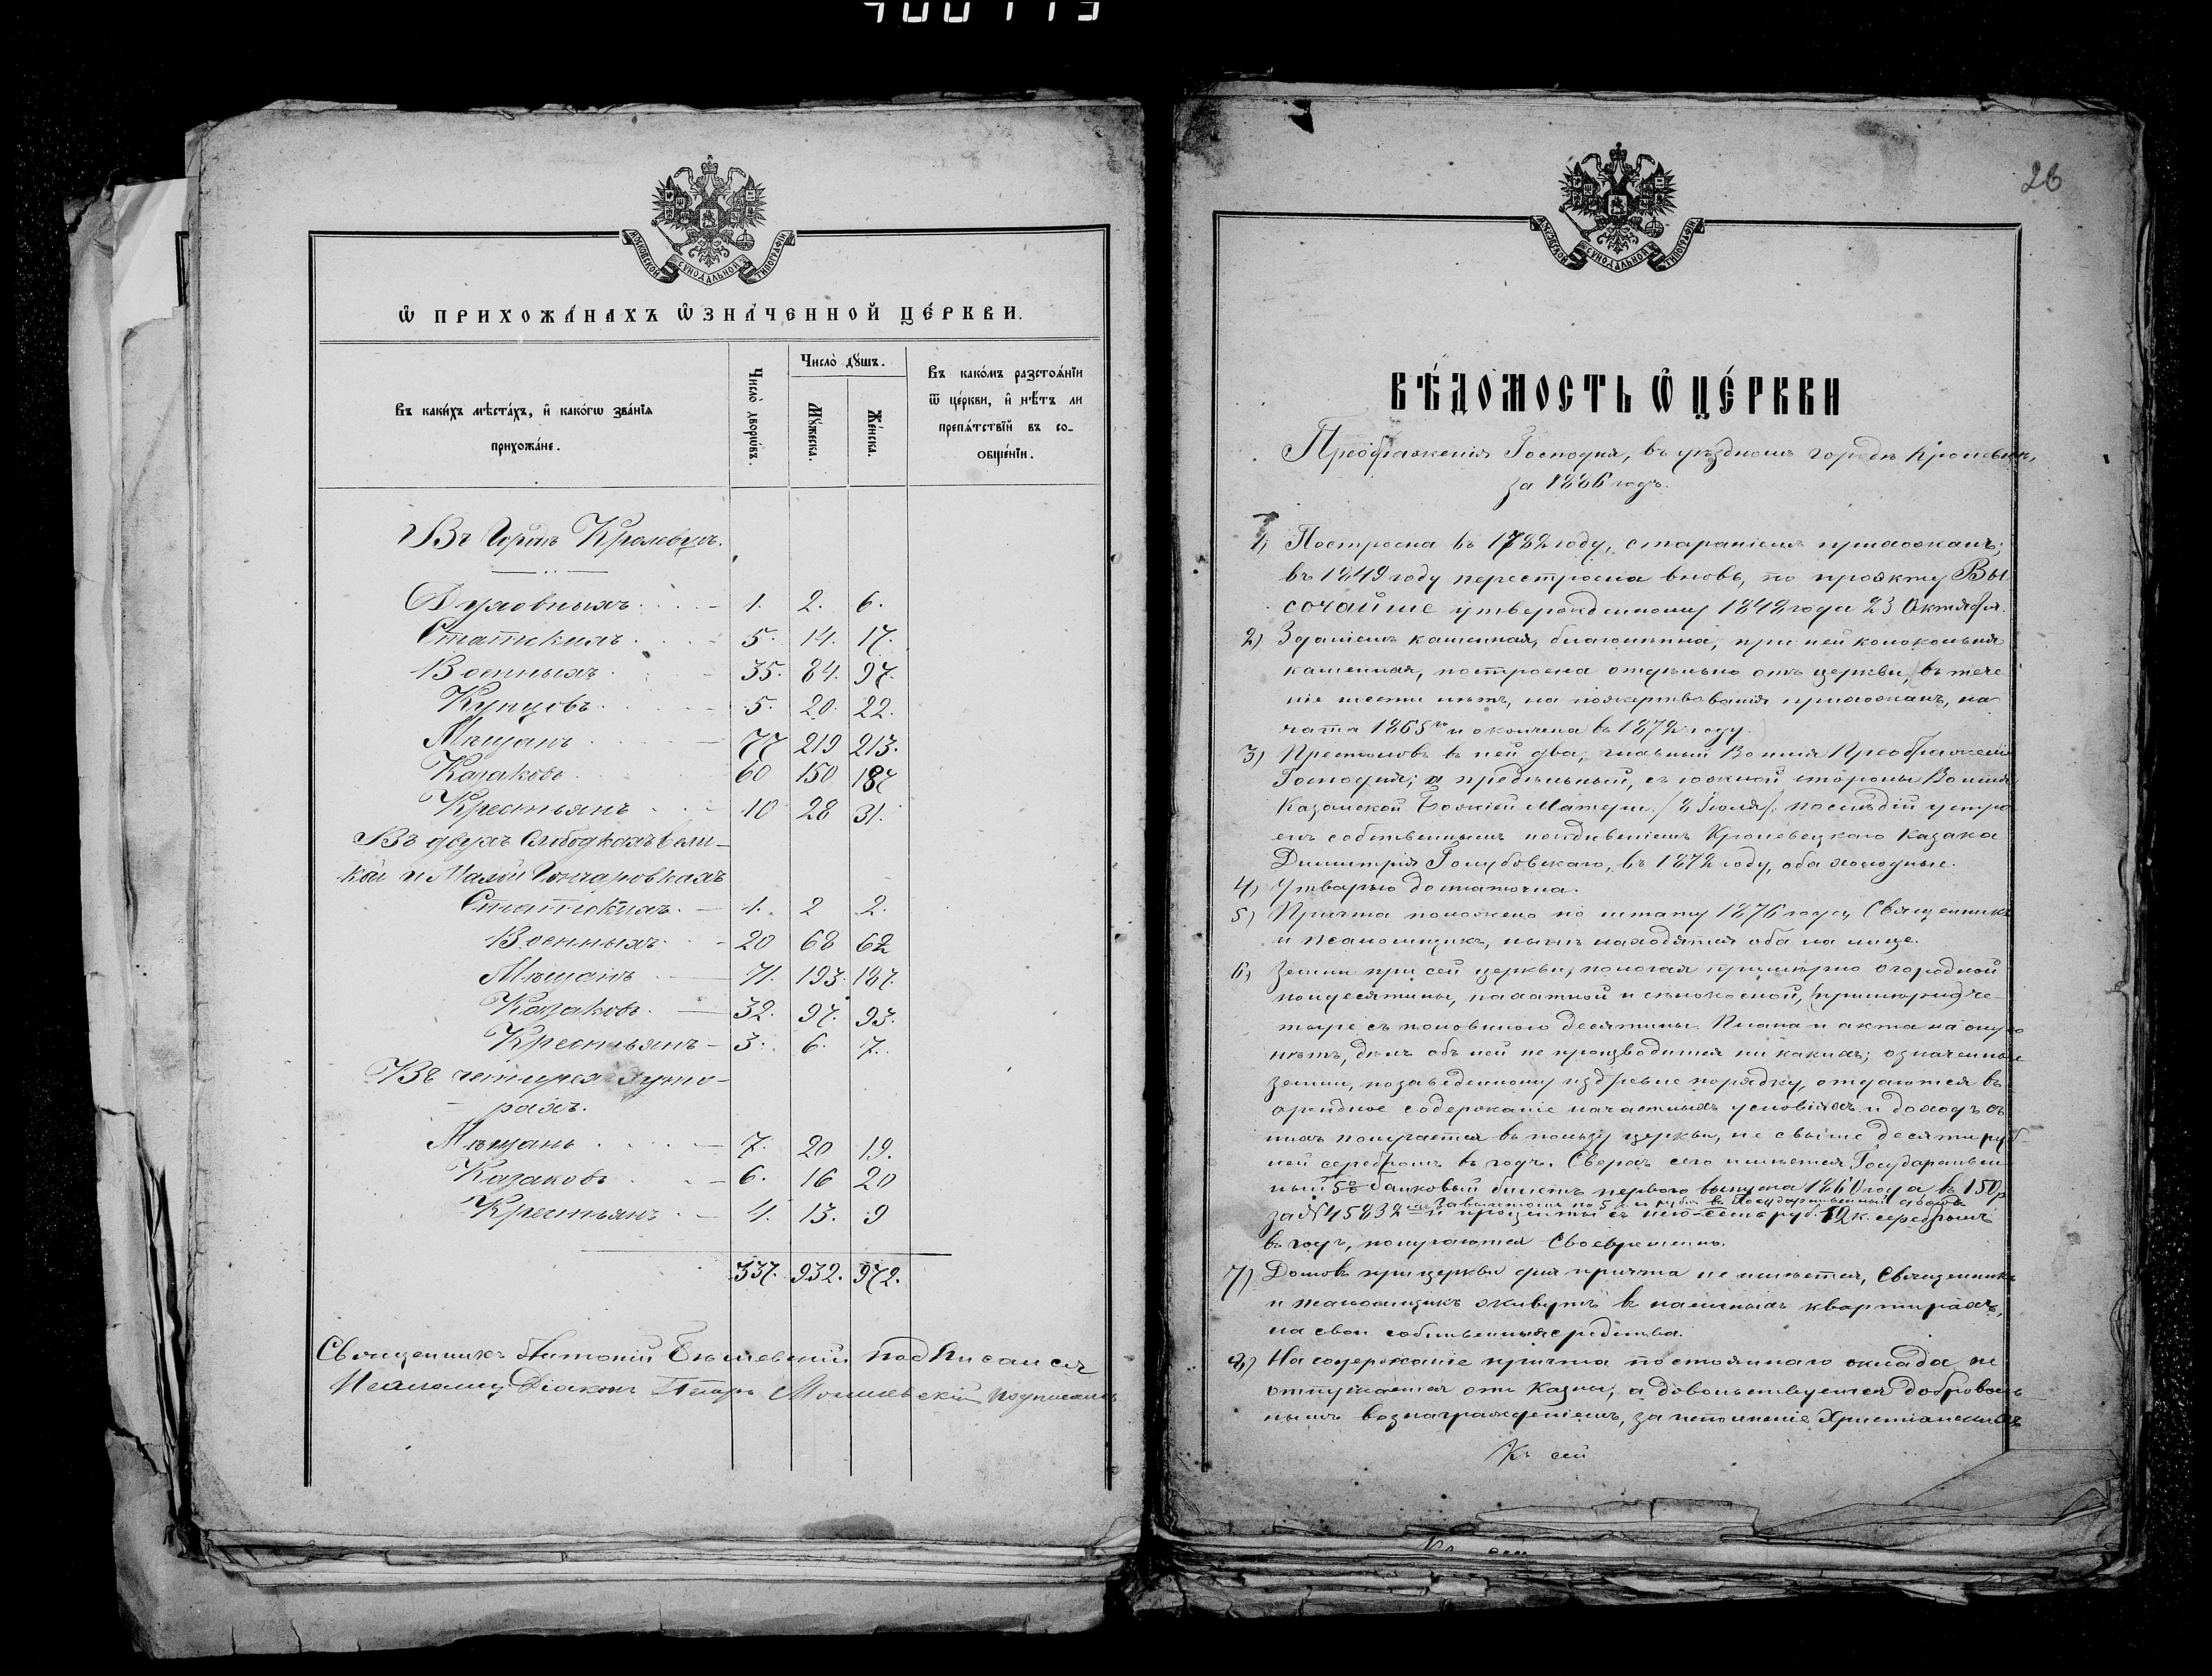 МОСКОВСКОЙ СѴНОДАЛЬНОЙ ТИПОГРАФІИ
Ѡ ПРИХОЖА́НАХЪ ѠЗНА́ЧЕННОЙ ЦЕ́РКВИ.
Въ каки́хъ мѣста́хъ, и҆ како́гѡ зва́нїѧ
прихожа́не.
Число̀ дворѡ́въ.
Число̀ дꙋ́шъ.
Мꙋ́жеска.
Же́нска.
Въ како́мъ разстоѧ́нїи
ѿ це́ркви, и҆ нѣ́тъ ли
препѧ́тствїй въ со-
общє́нїи.
Въ Городѣ Кролевцѣ.
Духовныхъ 1. 2. 6.
Статскихъ 5. 14. 17.
Военныхъ 35. 84. 97.
Купцовъ 5. 20. 22.
Мѣщанъ 77 219 213.
Казаковъ 60 150 187
Крестьянъ 10 28 31.
Въ двухъ Слободкахъ Вели-
кой и Малой Гончаровкахъ
Статскихъ. 1. 2 2.
Военныхъ 20 68 62
Мѣщанъ 71. 193. 187.
Казаковъ. 32. 97. 93.
Крестьянъ 3. 6. 7.
Въ четырехъ Хуто-
рахъ.
Мѣщанъ 7. 20 19.
Казаковъ 6. 16 20
Крестьянъ 4. 13. 9
337. 932. 972.
Священникъ Антоній подписался
Псаломщ. Діаконъ Петръ подписался
28
МОСКОВСКОЙ СѴНОДАЛЬНОЙ ТИПОГРАФІИ
ВѢ́ДОМОСТЬ Ѡ҆ ЦЕ́РКВИ
Преображенія Господня, въ уѣздномъ городѣ Кролевцѣ,
за 1886 годъ.
1) Построена въ 1782 году, стараніемъ прихожанъ;
въ 1849 году перестроена вновь, по проэкту Вы
сочайше утвержденному 1848 года 23 Октября.
2) Зданіемъ каменная, благолѣпна, при ней колокольня
каменная, построена отдѣльно отъ церкви, въ тече
ніе шести лѣтъ, на пожертвованія прихожанъ, на
чата 1865 и окончена въ 1872 году.
3) Престоловъ въ ней два, главный Во имя Преображенія
Господня; а предѣльный, съ южной стороны Во имя
Казанской Божіей Матери /8 Іюля/. послѣдій устро
енъ собственнымъ иждивеніемъ Кролевецкаго Казака
Димитрія Голубовскаго, въ 1872 году, оба холодные.
4) Утварью достаточна.
5) Причта положено по штату 1876 году, Священникъ
и псаломщикъ, нынѣ находятся оба на лице.
6) Земли при сей церкви, полагая примѣрно огородной
полдесятины, пахатной и сѣнокосной, (примѣрно) че-
тыре съ половиною десятины. Плана и акта на оную
нѣтъ, дѣлъ объ ней не производится ни какихъ; означенные
земли, по заведенному издревле порядку, отдаются въ
арендное содержаніе на частныхъ условіяхъ и доходъ съ
нихъ получается въ пользу церкви, не свыше десяти руб
лей серебромъ въ годъ. Сверхъ сего имѣется Государствен
ный 5% банковый билетъ перваго выпуска 1860 года въ 150 р
за № 45832 и проценты съ него семь руб. 12 к. серебромъ
въ годъ, получаются своевременно.
7) Домовъ при церкви для причта не имѣется, Священникъ
и псаломщикъ живутъ въ наемныхъ квартирахъ,
на свои собственныя средства.
8) На содержаніе причта постояннаго оклада не
отпускается отъ Казны, а довольствуется доброволь
нымъ вознагражденіемъ, за исполненіе Христіанскихъ
Къ сей